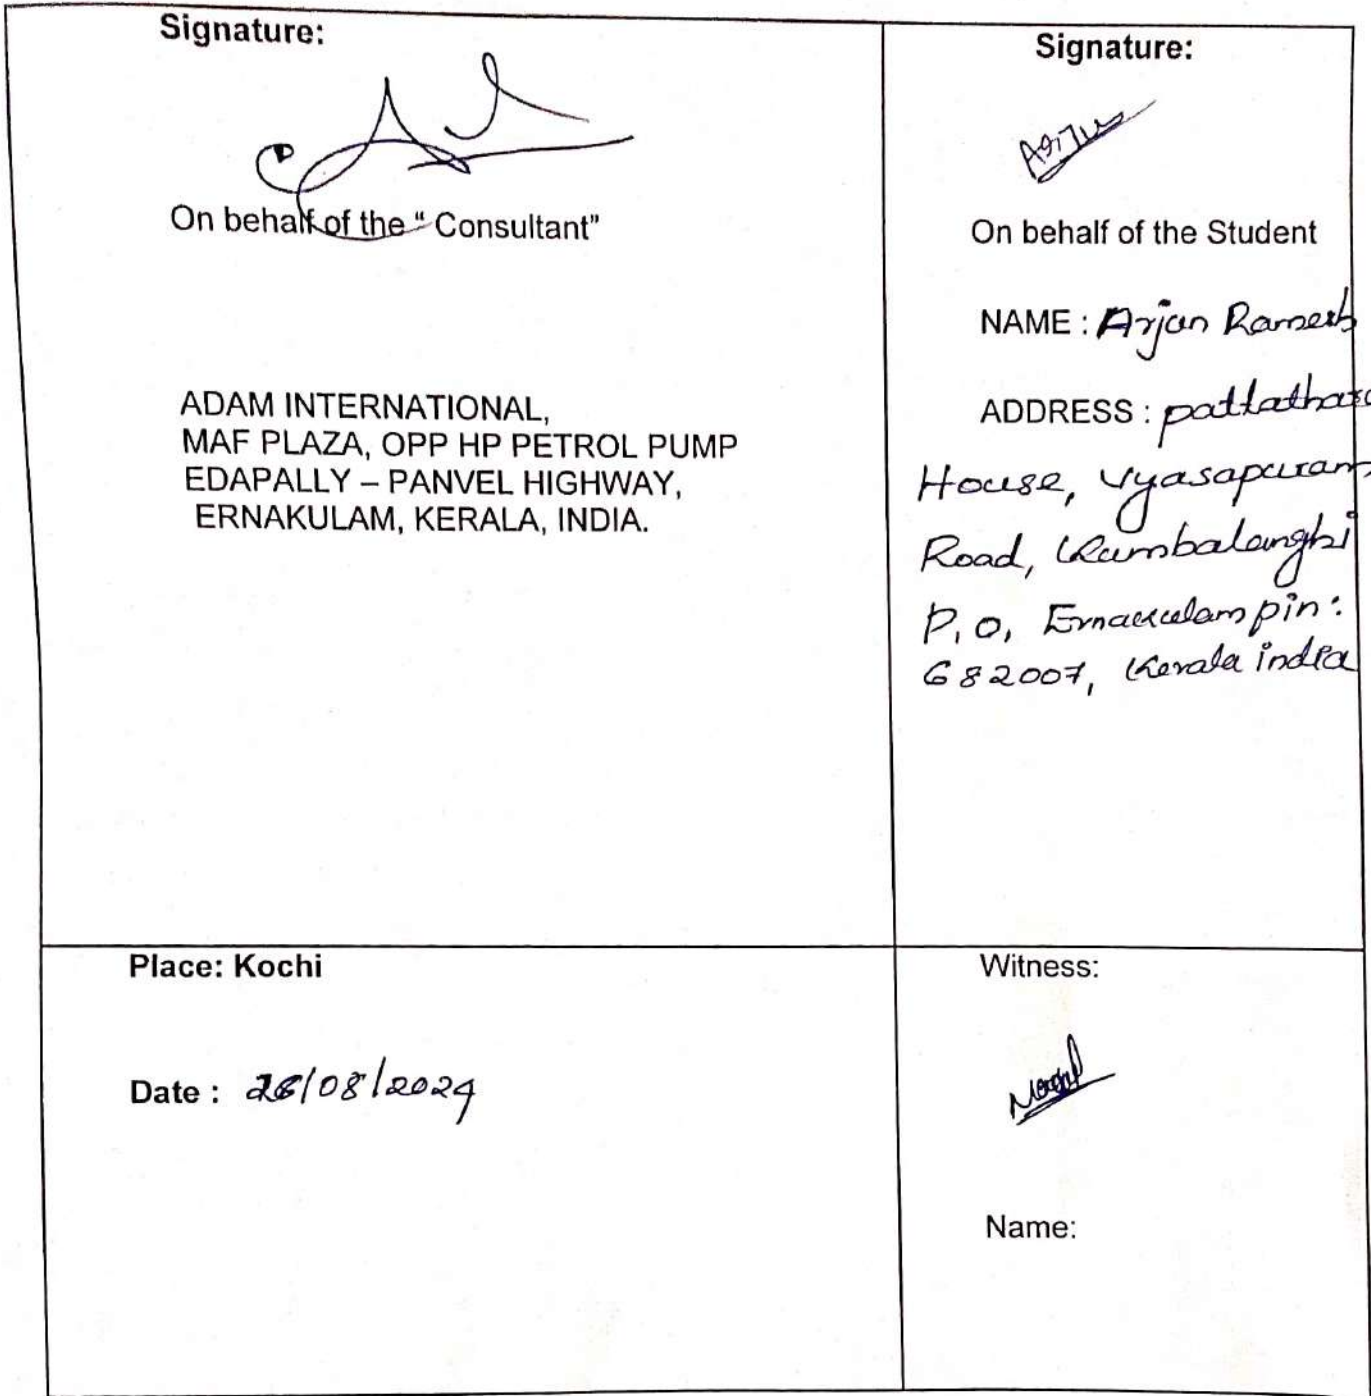 Signature:
On behalf of the “ Consultant”
ADAM INTERNATIONAL,
MAF PLAZA, OPP HP PETROL PUMP
EDAPALLY – PANVEL HIGHWAY,
ERNAKULAM, KERALA, INDIA.
Signature:
On behalf of the Student
NAME : Arjun Ramesh
ADDRESS : pattathara
House, Vyasapuram
Road, Kumbalanghi
P.O, Ernakulam pin:
682007, Kerala india
Place: Kochi
Date : 26/08/2024
Witness:
Name: